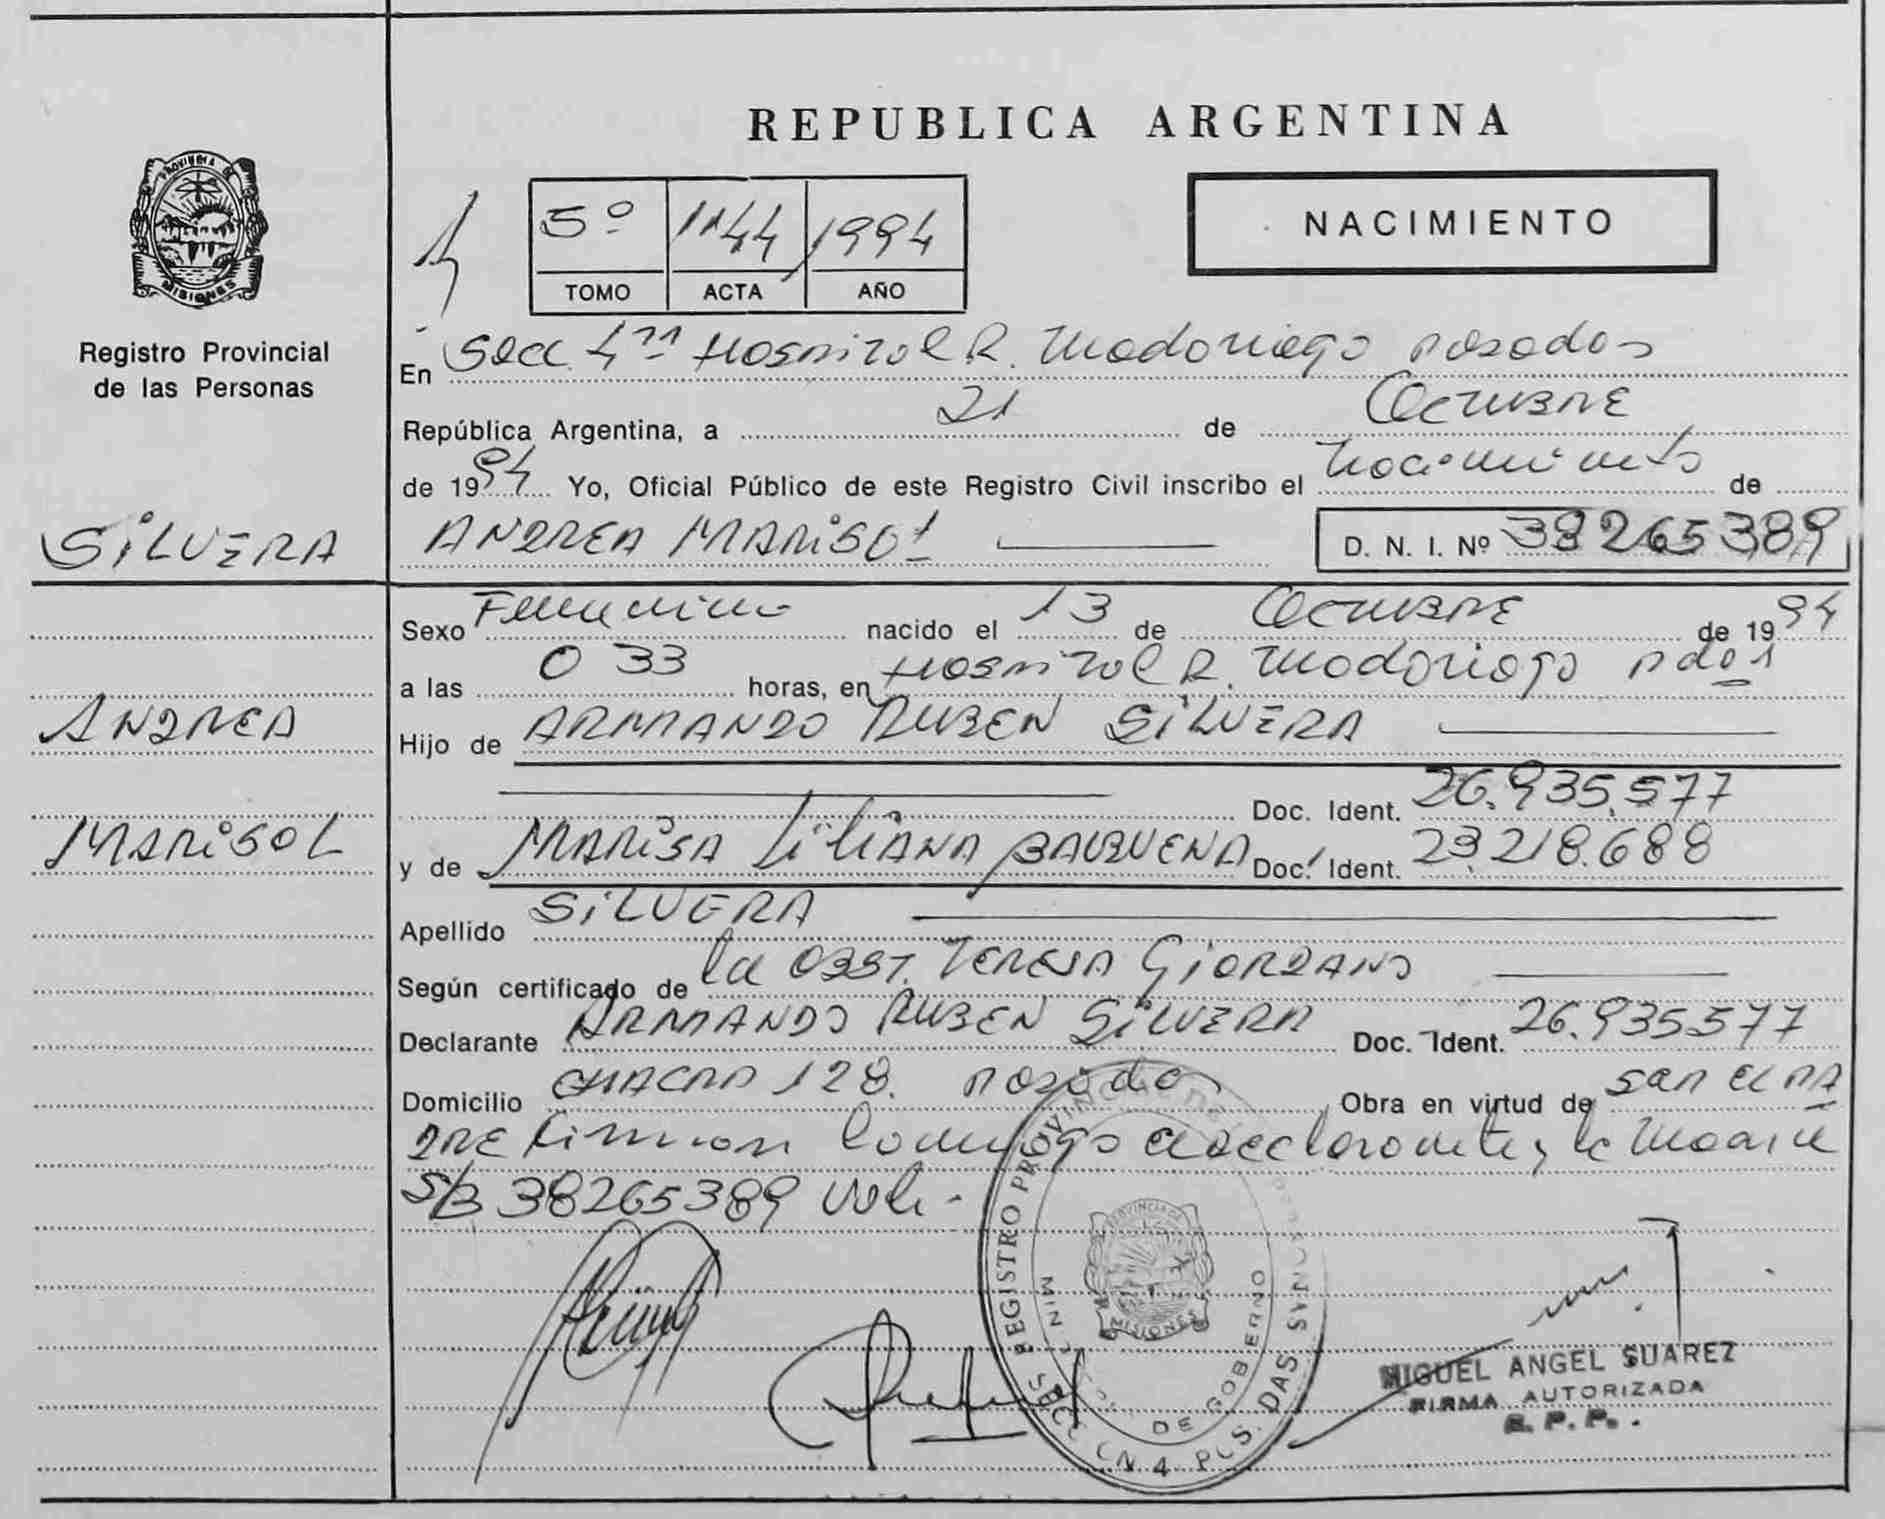 REPUBLICA ARGENTINA
PROVINCIA DE
MISIONES
Registro Provincial
de las Personas
5º 1144 1994
TOMO ACTA AÑO
NACIMIENTO
En Secc. 4ta Hospital R. Madariaga Posadas
República Argentina, a 21 de Octubre
de 1994 Yo, Oficial Público de este Registro Civil inscribo el Nacimiento de
SILVERA
ANDREA MARISOL
D. N. I. Nº 38265389
Sexo Femenino nacido el 13 de Octubre de 1994
a las 0 33 horas, en Hospital R. Madariaga Pdas
ANDREA
Hijo de ARMANDO RUBEN SILVERA
Doc. Ident. 26.935.577
MARISOL
y de MARISA LILIANA BALBUENA Doc. Ident. 23.218.688
Apellido SILVERA
Según certificado de la OBST. TERESA GIORDANO
Declarante ARMANDO RUBEN SILVERA Doc. Ident. 26.935577
Domicilio CHACRA 128. Posadas Obra en virtud de
Firman Conmigo el declarante y la Madre
S/B 38265389 Vale -
REGISTRO PROVINCIAL DE LAS PERSONAS
DE GOBIERNO
MISIONES
MIGUEL ANGEL SUAREZ
FIRMA AUTORIZADA